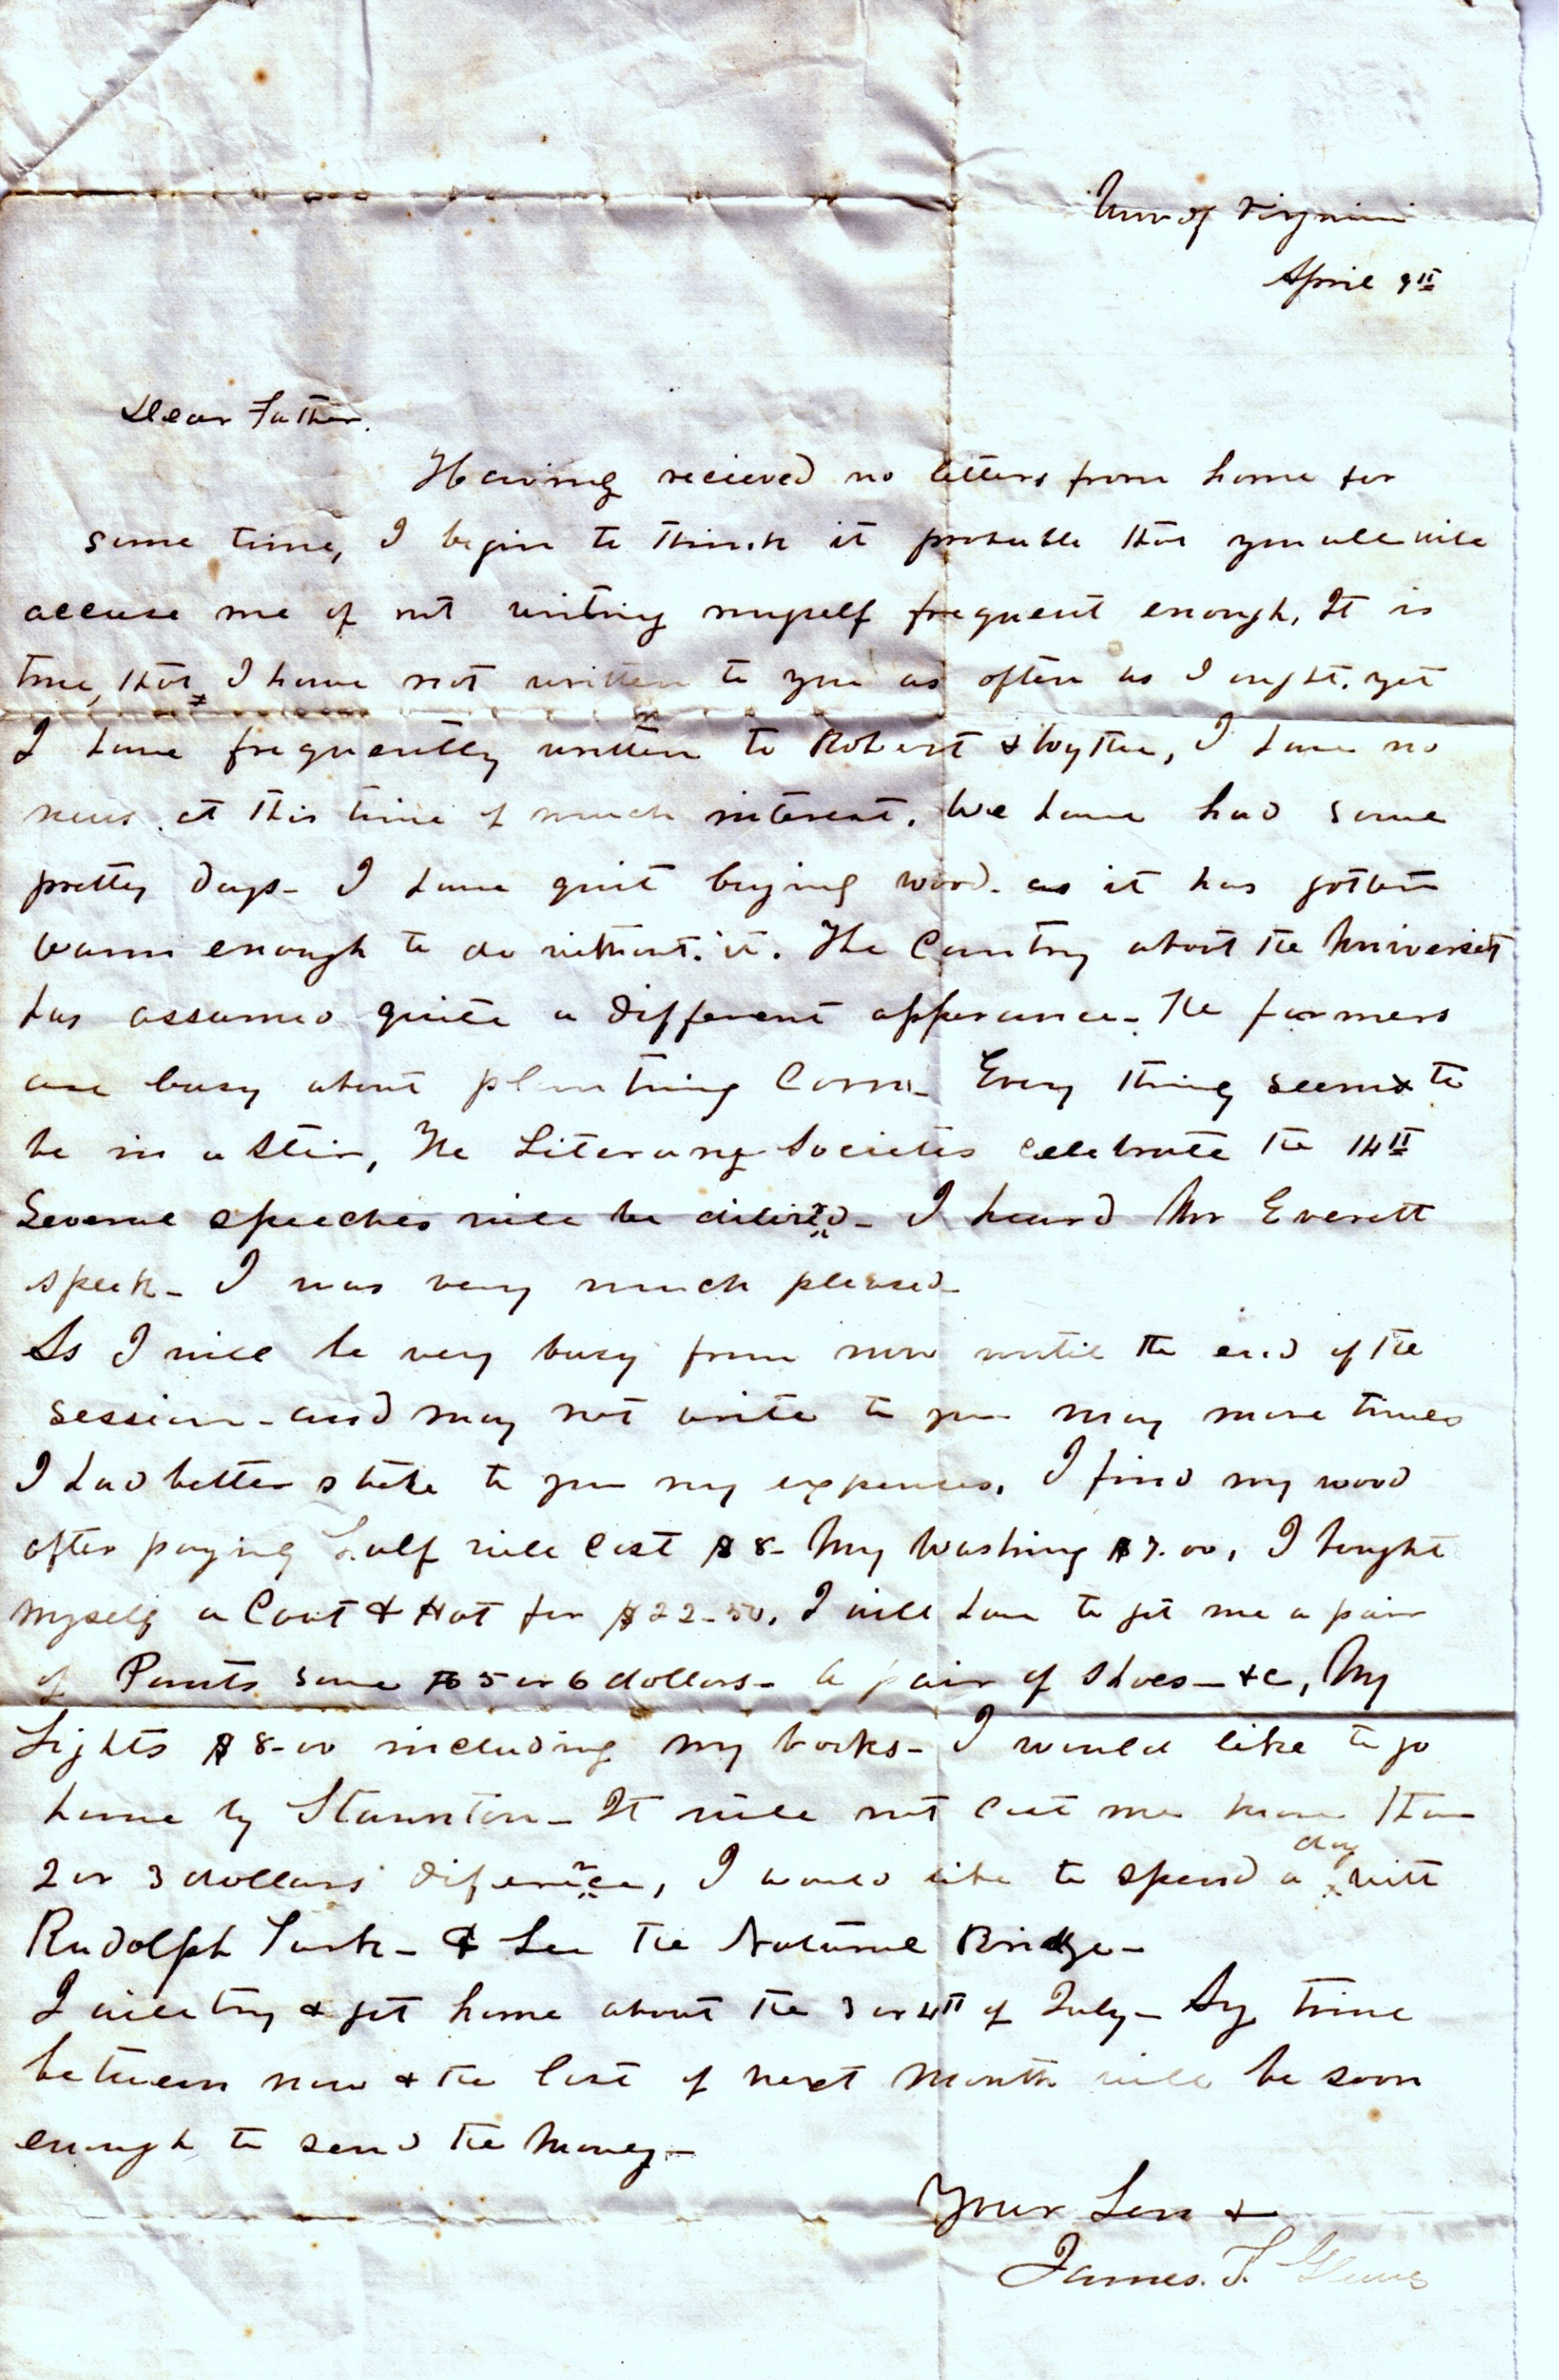 Univ of Virginia
April 9th
Dear Father.
Having recieved no letters from home for
some time, I begin to think it probable that you all will
accuse me of not writing myself frequent enough, It is
true, that I have not written to you as often as I ought. yet
I have frequently written to Robert & Wythe, I have no
news at this time of much interest. We have had some
pretty days - I have quit buying wood - as it has gotten
warm enough to do without it. The Country about the University
has assumed quite a different apperance - The farmers
are busy about planting Corn - Every thing seems to
be in a stir, The Literary Societies celebrate the 14th
Several speeches will be - I heard Mr Everett
speek - I was very much pleased -
As I will be very busy from now until the end of the
session - and may not write to you many more times
I had better state to you my expenses, I find my wood
after paying half will cost $8 - My Washing $7.00, I bought
myself a Coat & Hat for $22-50, I will have to get me a pair
of Pants some $5 or 6 dollars - a pair of shoes - &c, My
Lights $8-00 including my books - I would like to go
home by Staunton - It will not cost me more than
2 or 3 dollars diference, I would like to spend a day with
Rudolph Turk - & See the Natural Bridge -
I will try & get home about the 3 or 4th of July - Any time
between now & the last of next month will be soon
enough to send the money -
Your Son &
James. T.